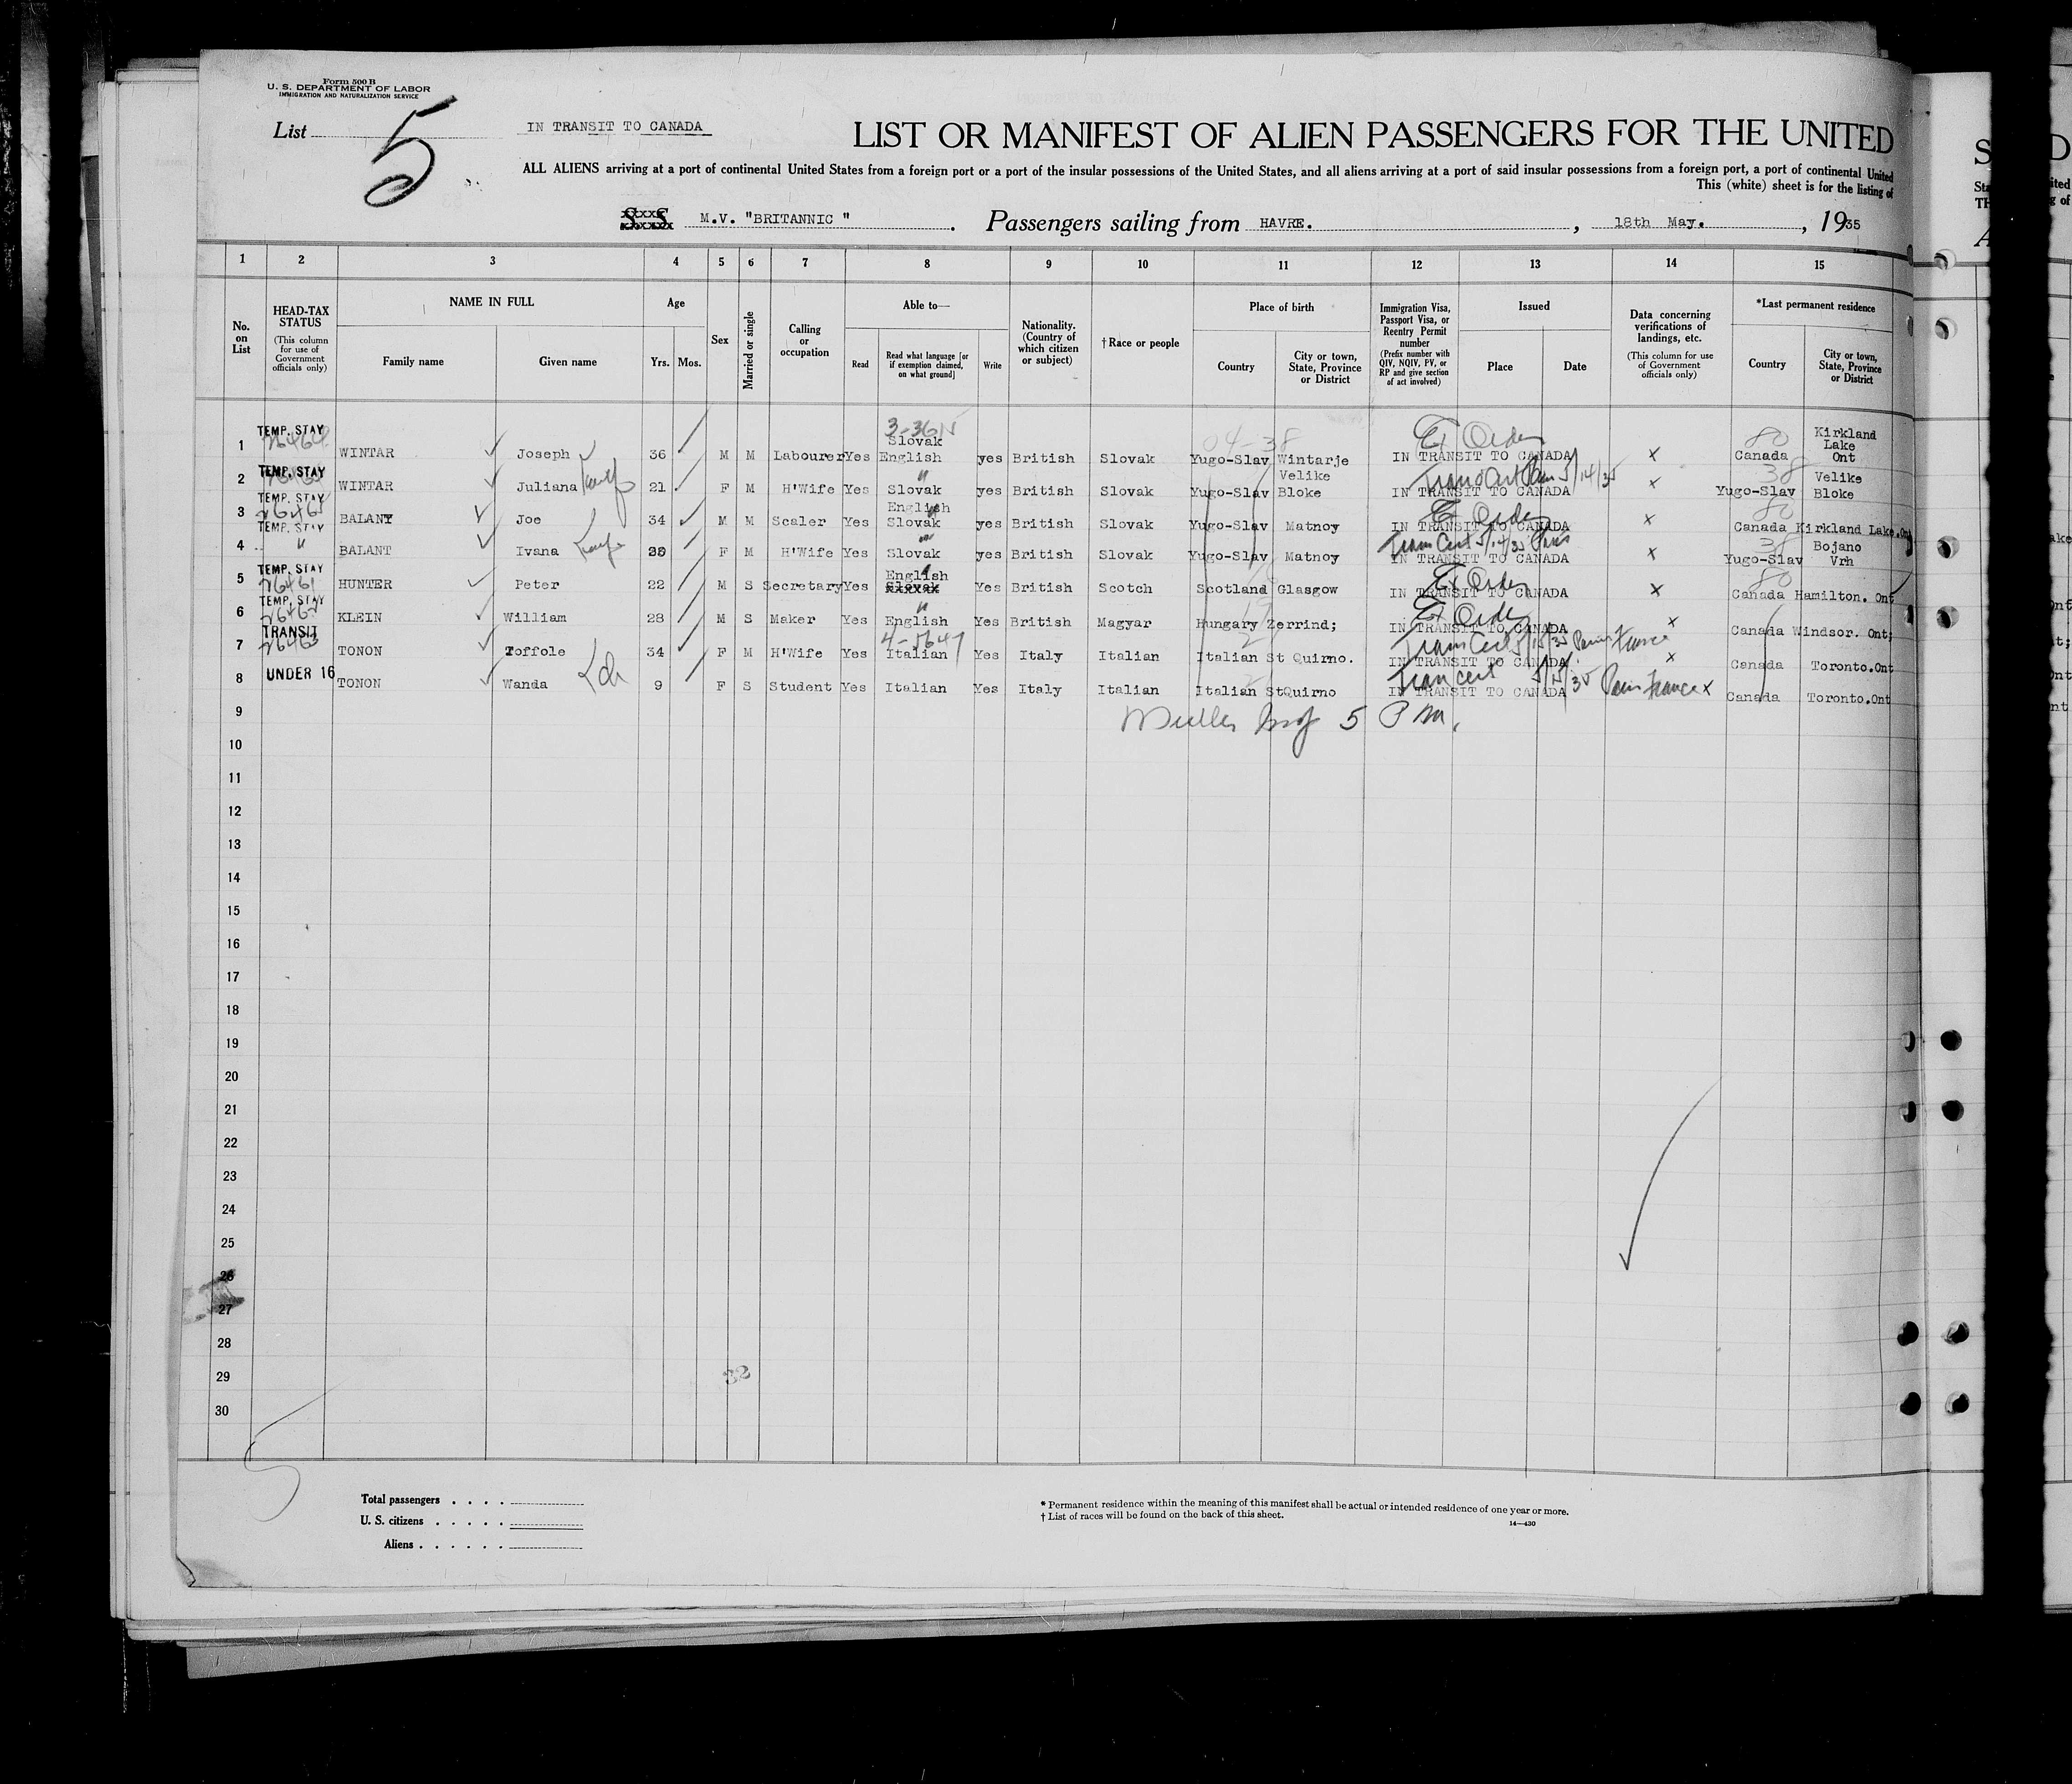 Form 500 B
U. S. DEPARTMENT OF LABOR
IMMIGRATION AND NATURALIZATION SERVICE
List 5
IN TRANSIT TO CANADA
LIST OR MANIFEST OF ALIEN PASSENGERS FOR THE UNITED
ALL ALIENS arriving at a port of continental United States from a foreign port or a port of the insular possessions of the United States, and all aliens arriving at a port of said insular possessions from a foreign port, a port of continental United
This (white) sheet is for the listing of
S S M.V. "BRITANNIC " . Passengers sailing from HAVRE. , 18th May. , 1935
1 2 3 4 5 6 7 8 9 10 11 12 13 14 15
No. on List
HEAD-TAX STATUS (This column for use of Government officials only)
NAME IN FULL
Family name Given name
Age
Yrs. Mos.
Sex
Married or single
Calling or occupation
Able to—
Read Read what language [or if exemption claimed, on what ground] Write
Nationality. (Country of which citizen or subject)
† Race or people
Place of birth
Country City or town, State, Province or District
Immigration Visa, Passport Visa, or Reentry Permit number (Prefix number with QIV, NQIV, PV, or RP and give section of act involved)
Issued
Place Date
Data concerning verifications of landings, etc. (This column for use of Government officials only)
*Last permanent residence
Country City or town, State, Province or District
1 TEMP. STAY 26464 WINTAR Joseph 36 M M Labourer Yes 3-36N Slovak English yes British Slovak Yugo-Slav Wintarje 04-38 Ex Order IN TRANSIT TO CANADA x 80 Canada Kirkland Lake Ont
2 TEMP. STAY WINTAR Juliana 21 F M H'Wife Yes " Slovak yes British Slovak Yugo-Slav Velike Bloke 5/14/35 IN TRANSIT TO CANADA x 38 Yugo-Slav Velike Bloke
3 TEMP. STAY 26465 BALANT Joe 34 M M Scaler Yes English Slovak yes British Slovak Yugo-Slav Matnoy Ex Order IN TRANSIT TO CANADA x 80 Canada Kirkland Lake.Ont
4 TEMP. STAY " BALANT Ivana F M H'Wife Yes " Slovak yes British Slovak Yugo-Slav Matnoy Tran Cert 5/14/35 Paris IN TRANSIT TO CANADA x 38 Yugo-Slav Bojano Vrh
5 TEMP. STAY 26461 HUNTER Peter 22 M S Secretary Yes English Slovak Yes British Scotch Scotland Glasgow Ex Order IN TRANSIT TO CANADA x 80 Canada Hamilton. Ont
6 TEMP. STAY 26462 KLEIN William 28 M S Maker Yes " English Yes British Magyar Hungary Zerrind; Ex Order IN TRANSIT TO CANADA x Canada Windsor. Ont;
7 TRANSIT 26463 TONON Toffole 34 F M H'Wife Yes Italian Yes Italy Italian Italian St Quirno. Tran Cert Paris France IN TRANSIT TO CANADA x Canada Toronto.Ont
8 UNDER 16 TONON Wanda 9 F S Student Yes Italian Yes Italy Italian Italian StQuirno Tran Cert Paris France IN TRANSIT TO CANADA x Canada Toronto.Ont
9 5 P M.
10
11
12
13
14
15
16
17
18
19
20
21
22
23
24
25
26
27
28
29 32
30
Total passengers . . . .
U. S. citizens . . . . .
Aliens . . . . . .
* Permanent residence within the meaning of this manifest shall be actual or intended residence of one year or more.
† List of races will be found on the back of this sheet.
14—430